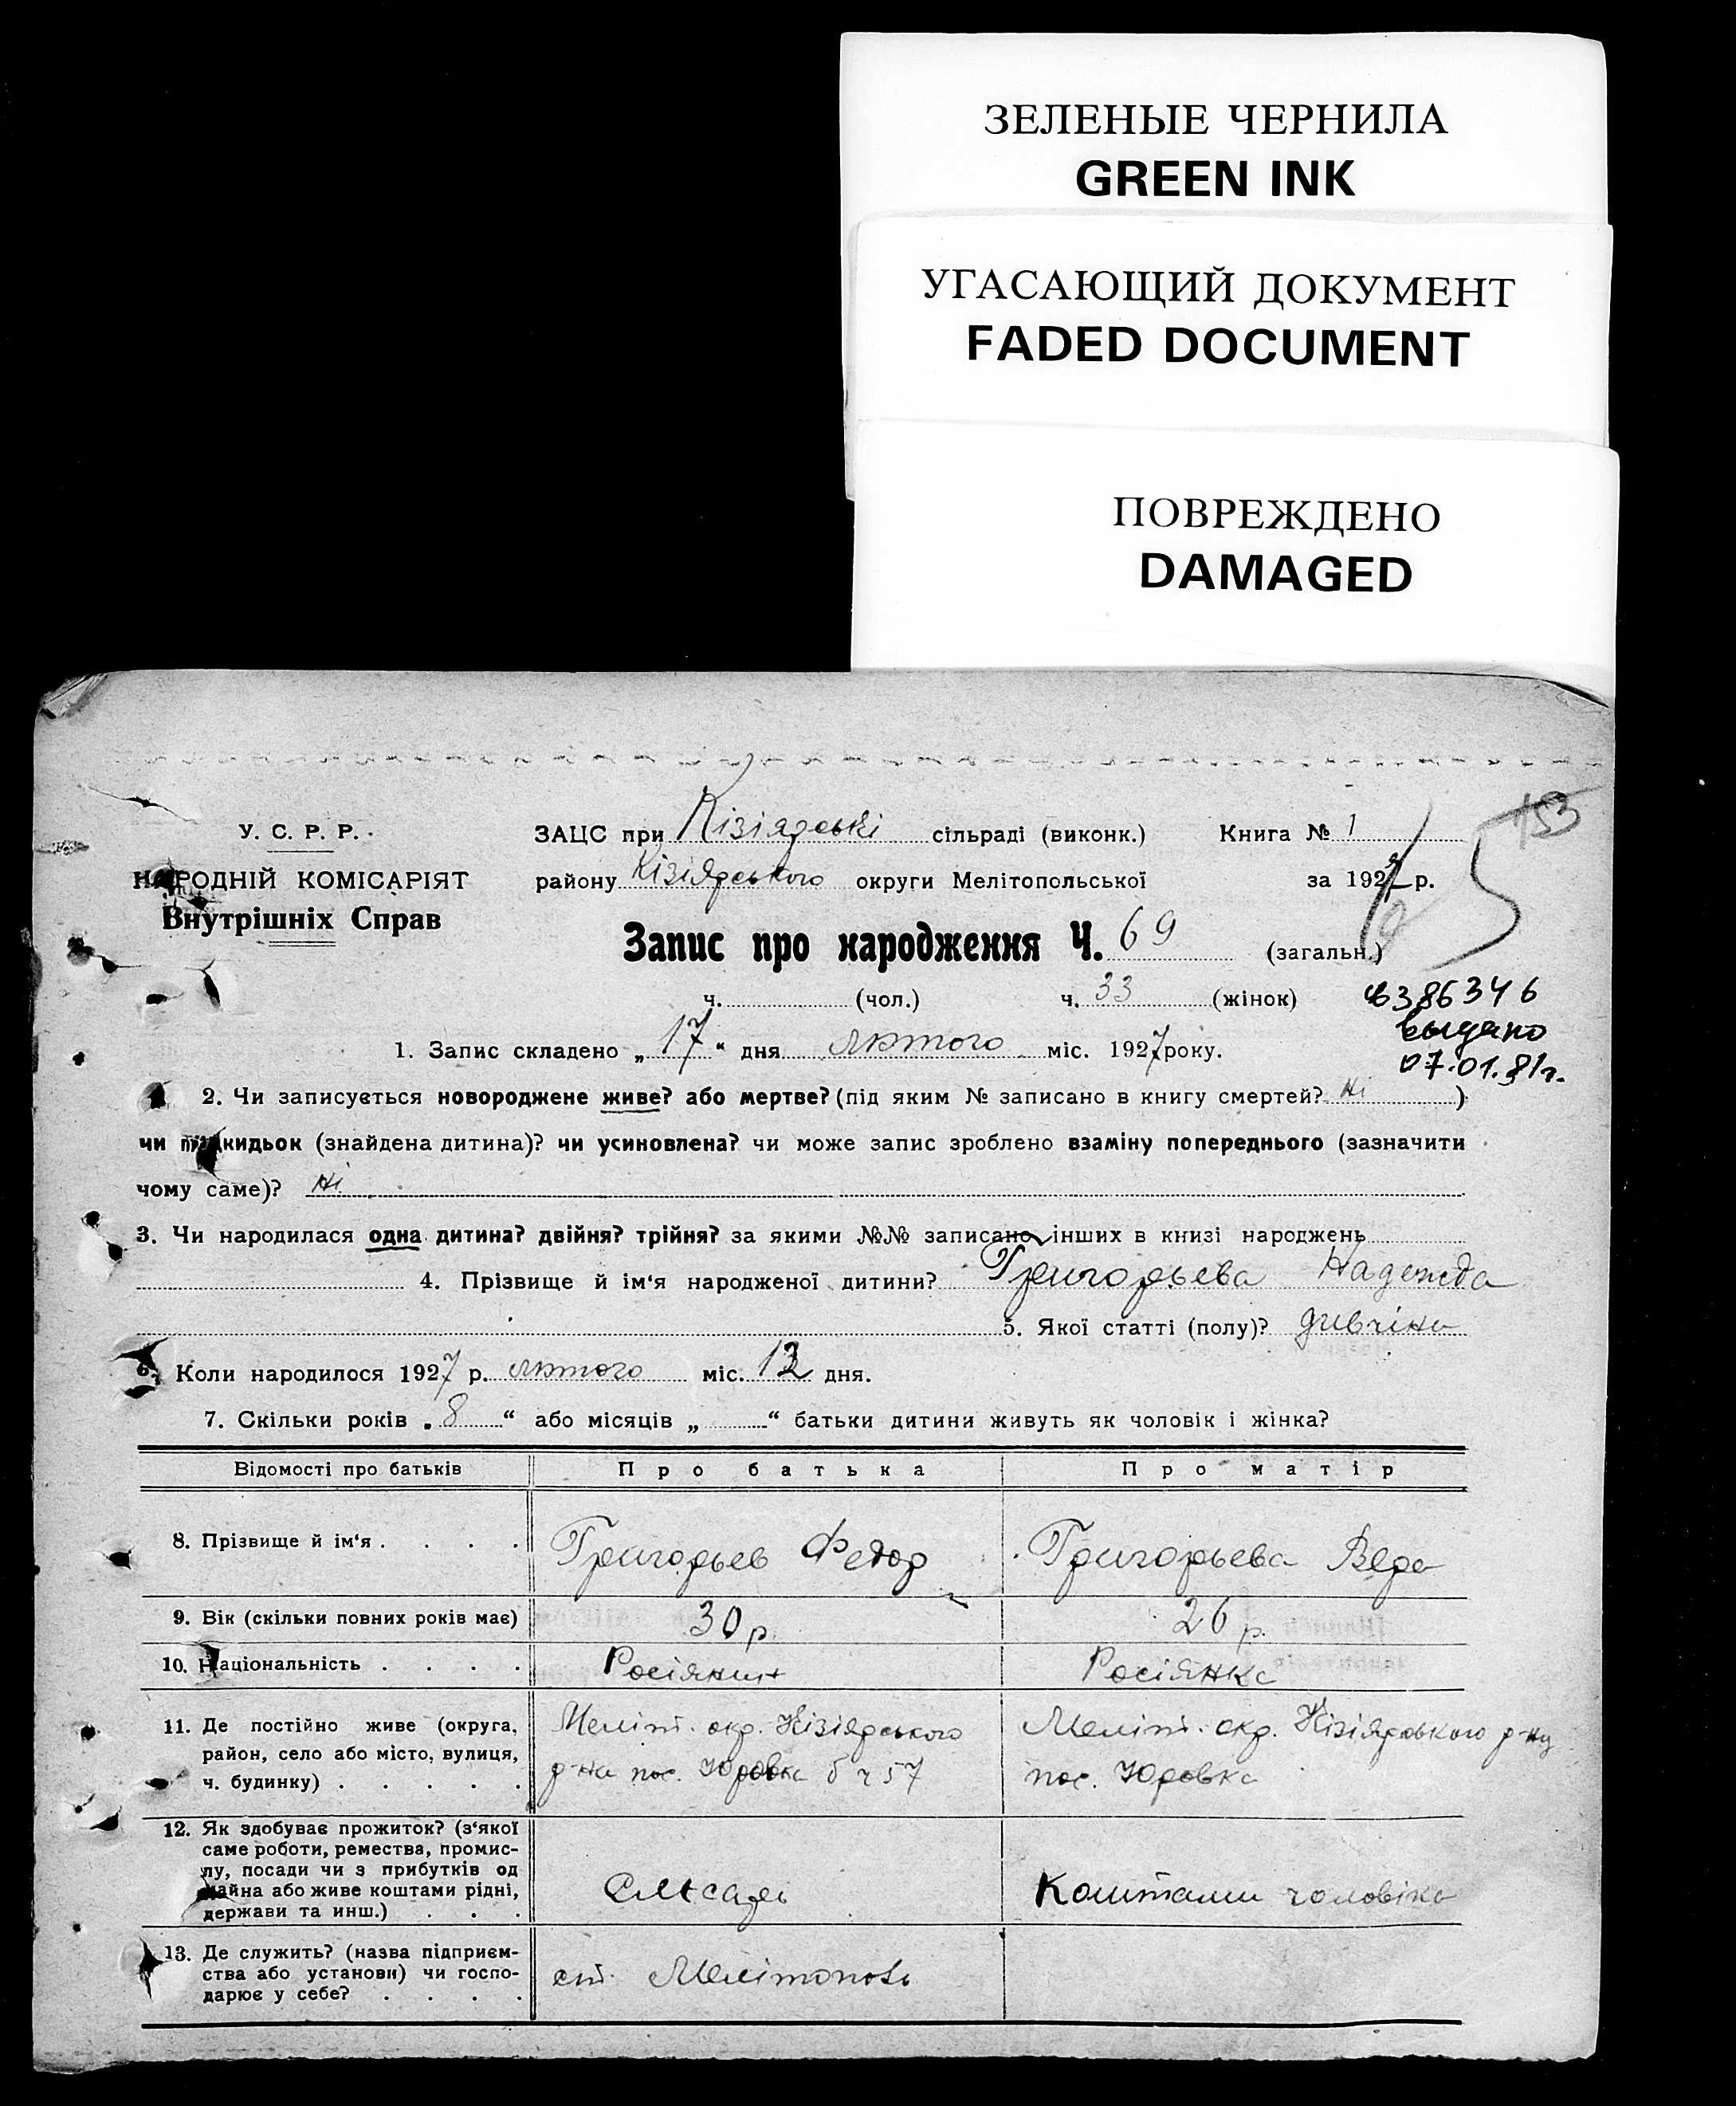 ЗЕЛЕНЫЕ ЧЕРНИЛА
GREEN INK
УГАСАЮЩИЙ ДОКУМЕНТ
FADED DOCUMENT
ПОВРЕЖДЕНО
DAMAGED
153
У. С. Р. Р.
НАРОДНІЙ КОМІСАРІЯТ
Внутрішніх Справ
ЗАЦС при Кізіярські сільраді (виконк.) Книга № 1
району Кізіярського округи Мелітопольської за 1927 р.
Запис про народження Ч. 69 (загальн.)
ч. (чол.) ч. 33 (жінок)
386346
выдано
07.01.81г.
1. Запис складено „17“ дня лютого міс. 1927 року.
2. Чи записується новороджене живе? або мертве? (під яким № записано в книгу смертей? Ні )
чи підкидьок (знайдена дитина)? чи усиновлена? чи може запис зроблено взаміну попереднього (зазначити
чому саме)? Ні
3. Чи народилася одна дитина? двійня? трійня? за якими №№ записано інших в книзі народжень
4. Прізвище й ім‘я народженої дитини? Григорьева Надежда
5. Якої статті (полу)? дивчіна
6. Коли народилося 1927 р. лютого міс. 12 дня.
7. Скільки років „8“ або місяців „ “ батьки дитини живуть як чоловік і жінка?
Відомості про батьків Про батька Про матір
8. Прізвище й ім‘я . . . . Григорьев Федор Григорьева Вера
9. Вік (скільки повних років має) 30 р. 26 р.
10. Національність . . . . Росіянин Росіянка
11. Де постійно живе (округа,
район, село або місто, вулиця,
ч. будинку) . . . . .
Меліт. окр. Кізіярського
р-на пос. Юровка б ч 57
Меліт. окр. Кізіярського р-ну
пос. Юровка
12. Як здобуває прожиток? (з‘якої
саме роботи, ремества, промис-
лу, посади чи з прибутків од
майна або живе коштами рідні,
держави та инш.) . . .
Коштами чоловіка
13. Де служить? (назва підприєм-
ства або установи) чи госпо-
дарює у себе? . . . .
ст. Мелітополь